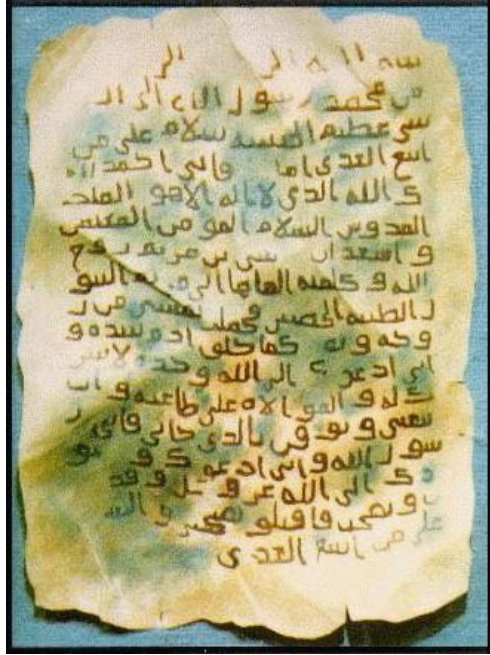 الله
من محمد رسول الله الى ال
سى عظيم الحبسه سلام على من
اتبع الهدى اما فانى احمد
ك الله الذى لا اله الا هو الملك
القدوس السلام المومن المهيمن
و اسهد ان بن مريم روح
الله و كلمته القاها الى مريم البتو
ل الطيبه الحصينه فحملت بعيسى من ر
وحه كما خلق ادم بيده و
انى ادعو الى الله وحده لا سر
ك له و الموالاه على طاعته و ان
تتبعنى و توقن بالذى جانى فانى ر
سول الله و انى ادعوك و
دك الى الله عز و جل و قد
و نصحت فاقبلوا و السـ
على من اتبع الهدى